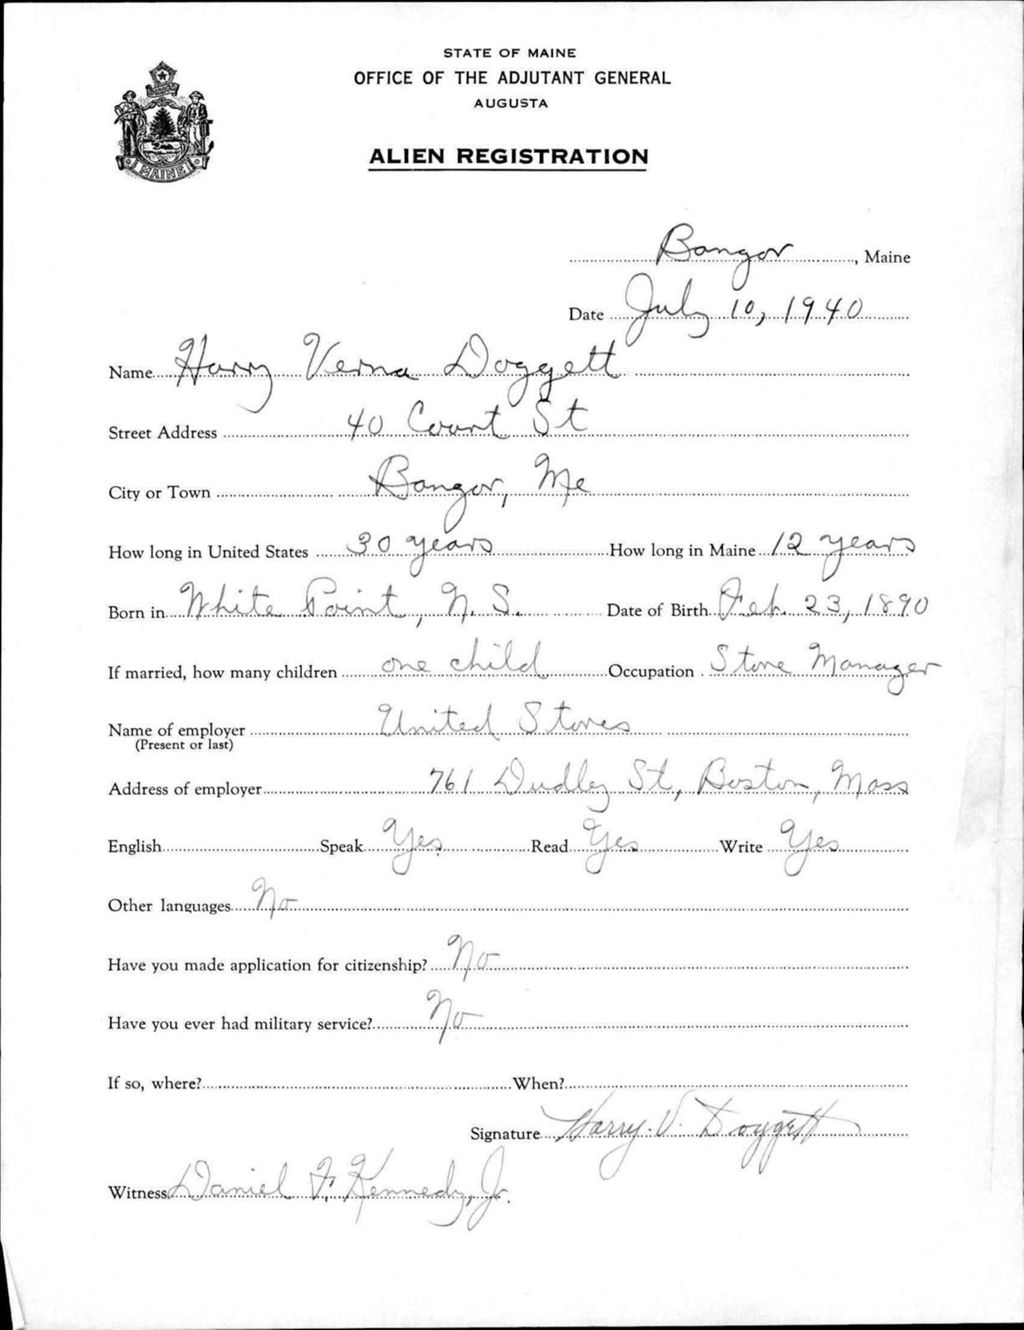 STATE OF MAINE
OFFICE OF THE ADJUTANT GENERAL
AUGUSTA
ALIEN REGISTRATION
MAINE
Bangor, Maine
Date July 10, 1940
Name Harry Verna Doggett
Street Address 40 Court St
City or Town Bangor, Me
How long in United States 30 years How long in Maine 12 years
Born in White Point, N. S. Date of Birth Feb. 23, 1890
If married, how many children one child Occupation Store Manager
Name of employer United Stores
(Present or last)
Address of employer 761 Dudley St., Boston, Mass
English Speak Yes Read Yes Write Yes
Other languages No
Have you made application for citizenship? No
Have you ever had military service? No
If so, where? When?
Signature Harry V. Doggett
Witness Daniel F. Kennedy, Jr.